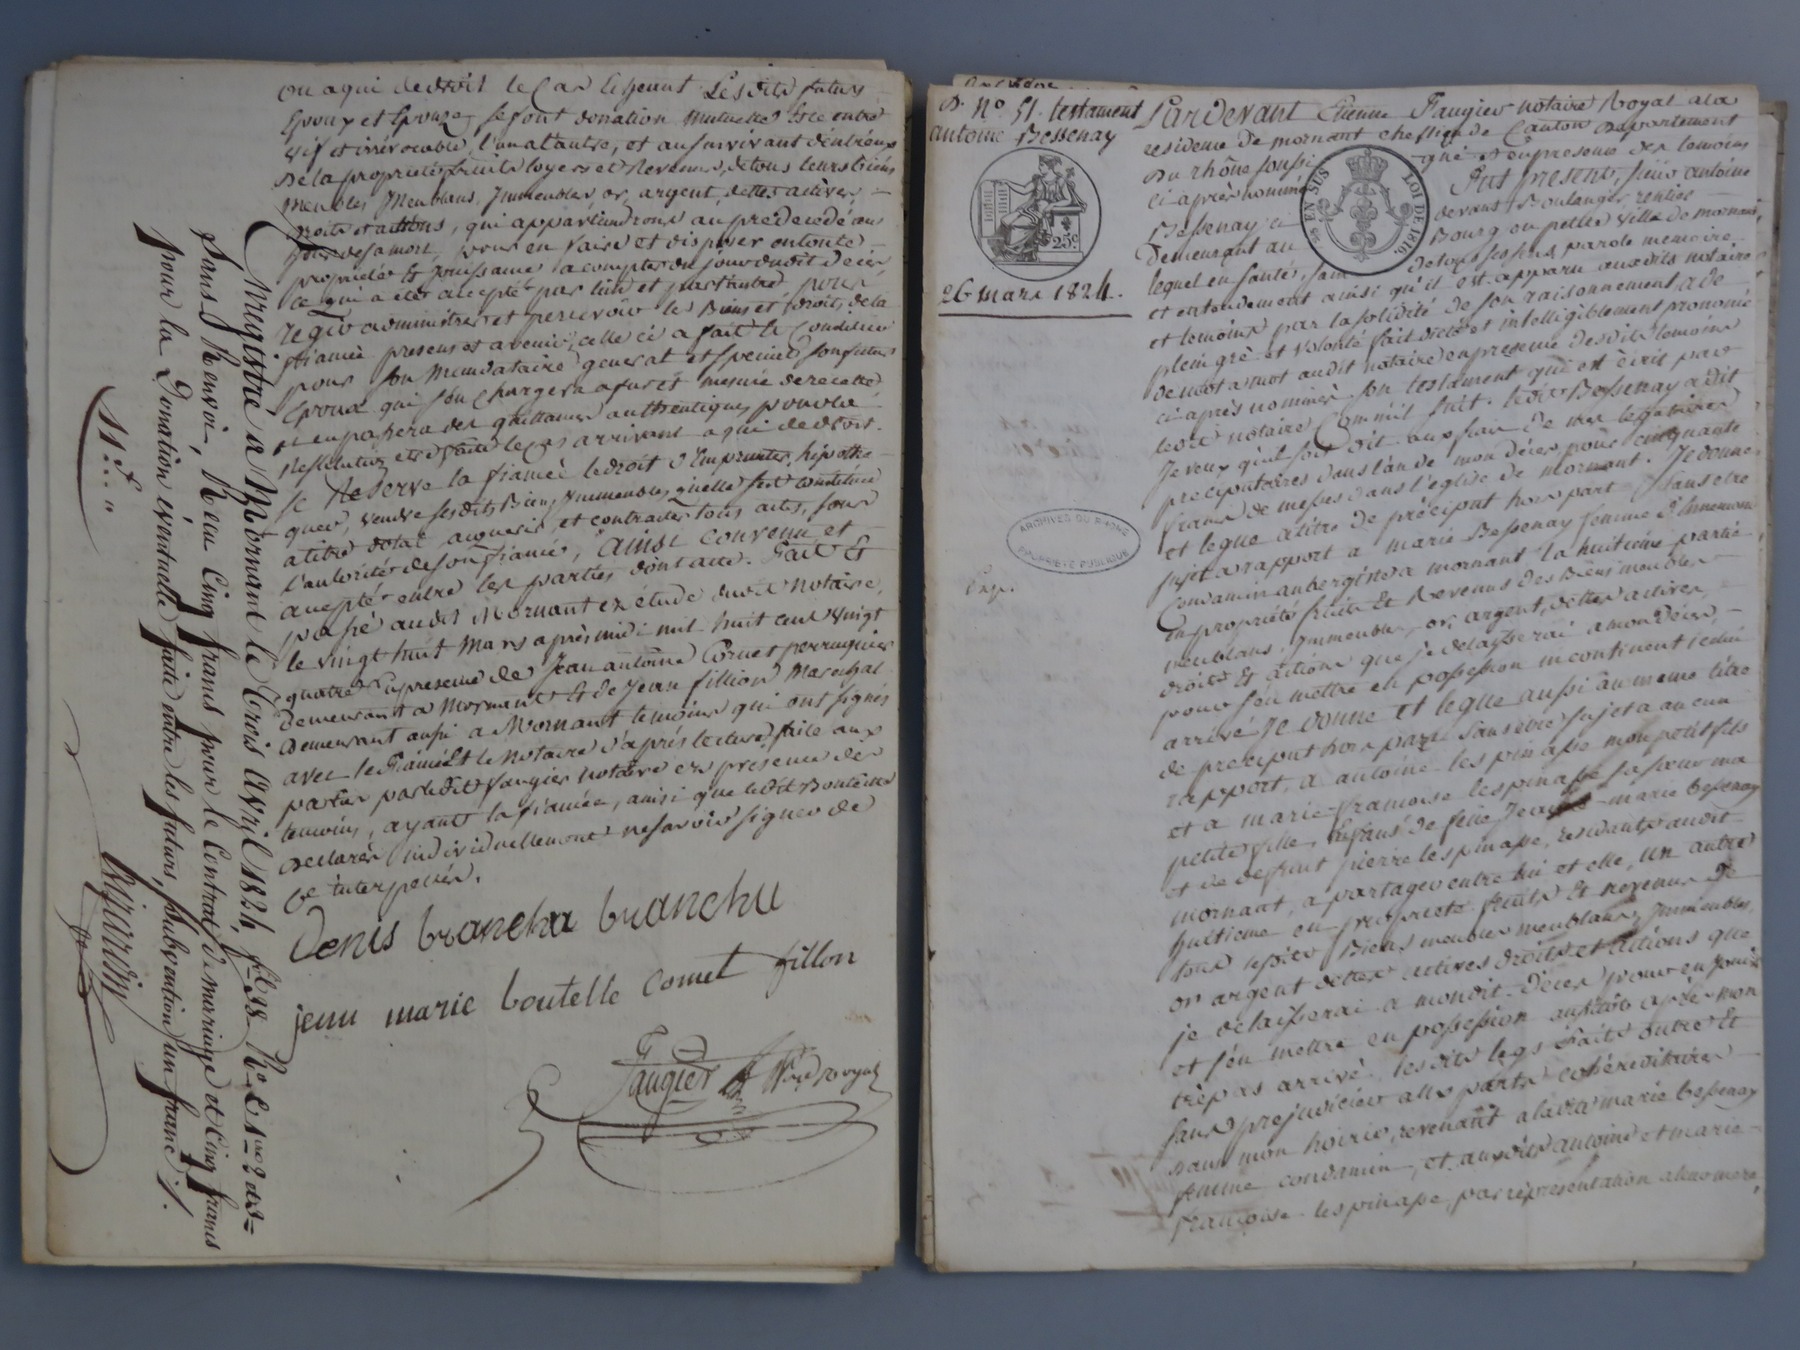 ou a qui de droit le cas échéant Lesdits futurs
Epoux et Epouze, se font donation mutuelle Esce entre
vif et irrévocable, l'un a l'autre, et au survivant d'entr'eux
De la propriété fruits loyers et Revenus, de tous leurs biens
Meubles, Meublans, Jmmeubles, or, argent, dettes actives,
Droits et actions, qui appartiendront au predecedé au
jour de sa mort, pour en faire et disposer en toute
propriété Et jouissance a compter du jour dudit décès,
Ce qui a été accepté par l'un et par l'autre, pour
regir administrer et percevoir les Biens et droits de la
fiancée presens et avenir, celle ci a fait et Constitué
pour son Mandataire général et special son futur
Epoux qui s'en Chargera a fur et mesure de recette
et en passera des quittances authentiques pour la
restitution etre faite le cas arrivant a qui de droit.
Se Reserve la fiancée le droit d'Emprunter, hipothe
quer, vendre sesdits Biens Jmmeubles, quelle s'est constitué
a titre dotal acquerir et contracter tous actes, sous
l'autorité de son fiancé, Ainsi convenu et
accepté entre les parties, dont acte. Fait et
passé audit Mornant en etude dudit notaire,
le vingt huit Mars après midi mil huit cent vingt
quatre en presence de Jean antoine Cornet perruquier
demeurant a Mornant Et de Jean fillion Marechal
demeurant aussi a Mornant temoins qui ont signés
avec le fiancé Et le Notaire d'après lecture faite aux
parties par ledit faugier notaire en presence des
temoins, ayant la fiancée, ainsi que ledit Bouteille
declarés individuellement ne savoir signer de
Ce interpellés.
Denis branchu branchu
jean marie boutelle cornet fillon
Faugier Nre royal
Enregistré a Mornant le trois avril 1824, fo 98 Ro C 1re 2 et 3
sans Renvoi, Reçu Cinq francs pour le Contrat de mariage et Cinq francs
pour la Donation éventuelle faite entre les futurs, subvention un franc /.
11f "
D. No 51. testament
antoine Bessenay
25c
26 mars 1824.
Pardevant Etienne Faugier notaire Royal a la
residence de mornant chef lieu de Canton Departement
Du rhône soussigné et en presence des temoins
ci après nommés Fut present, sieur antoine
Bessenay ci devant Boulanger, rentier
Demeurant au Bourg ou petite ville de mornant,
EN SUS LOI DE 1816
lequel en santé, sain de tous ses sens, parole memoire
et entendement ainsi qu'il est apparu auxdits notaire
et temoins par la solidité de son raisonnement, a de
plein gré et volonté fait dicté et intelligiblement prononcé
de mot a mot audit notaire en presence desdits temoins
ci après nommés son testament qui est écrit par
ledit notaire Comme suit. ledit Bessenay a dit
Je veux qu'il soit dit aux frais de mes legataires
preciputaires dans l'an de mon décès pour cinquante
francs de messes dans l'eglise de mornant. Je donne
et legue a titre de préciput hors part sans etre
sujet a rapport a marie Bessenay femme d'
Condamin aubergiste a mornant la huitieme partie
en propriété fruits Et Revenus des Biens meubles
meublans, Jmmeubles, or, argent, dettes actives,
droits Et actions que je delaisserai a mon décès,
pour s'en mettre en possession incontinent icelui
arrivé Je donne et legue aussi au meme titre
de preciput hors part sans etre sujet a aucun
rapport, a antoine lespinasse mon petit fils
et a marie-françoise lespinasse sa soeur ma
petite fille, Enfans de feüe Jeanne-marie bessenay
et de deffunt pierre lespinasse, residants audit
mornant, a partager entre lui et elle, un autre
huitieme en propriété fruits Et revenus de
tous lesdits Biens meubles meublans, Jmmeubles,
or argent dettes actives droits et actions que
je delaisserai a mondit décès pour en jouir
et s'en mettre en possession aussitôt après mon
trèpas arrivé, lesdits legs faits outre Et
sans prejudicier aux parts cohéréditaires
dans mon hoirie, revenant a ladite marie bessenay
femme condamin, et auxdits antoine et marie
françoise lespinasse, par représentation de leur mere,
Exp.
ARCHIVES DU RHONE
PROPRIÉTÉ PUBLIQUE